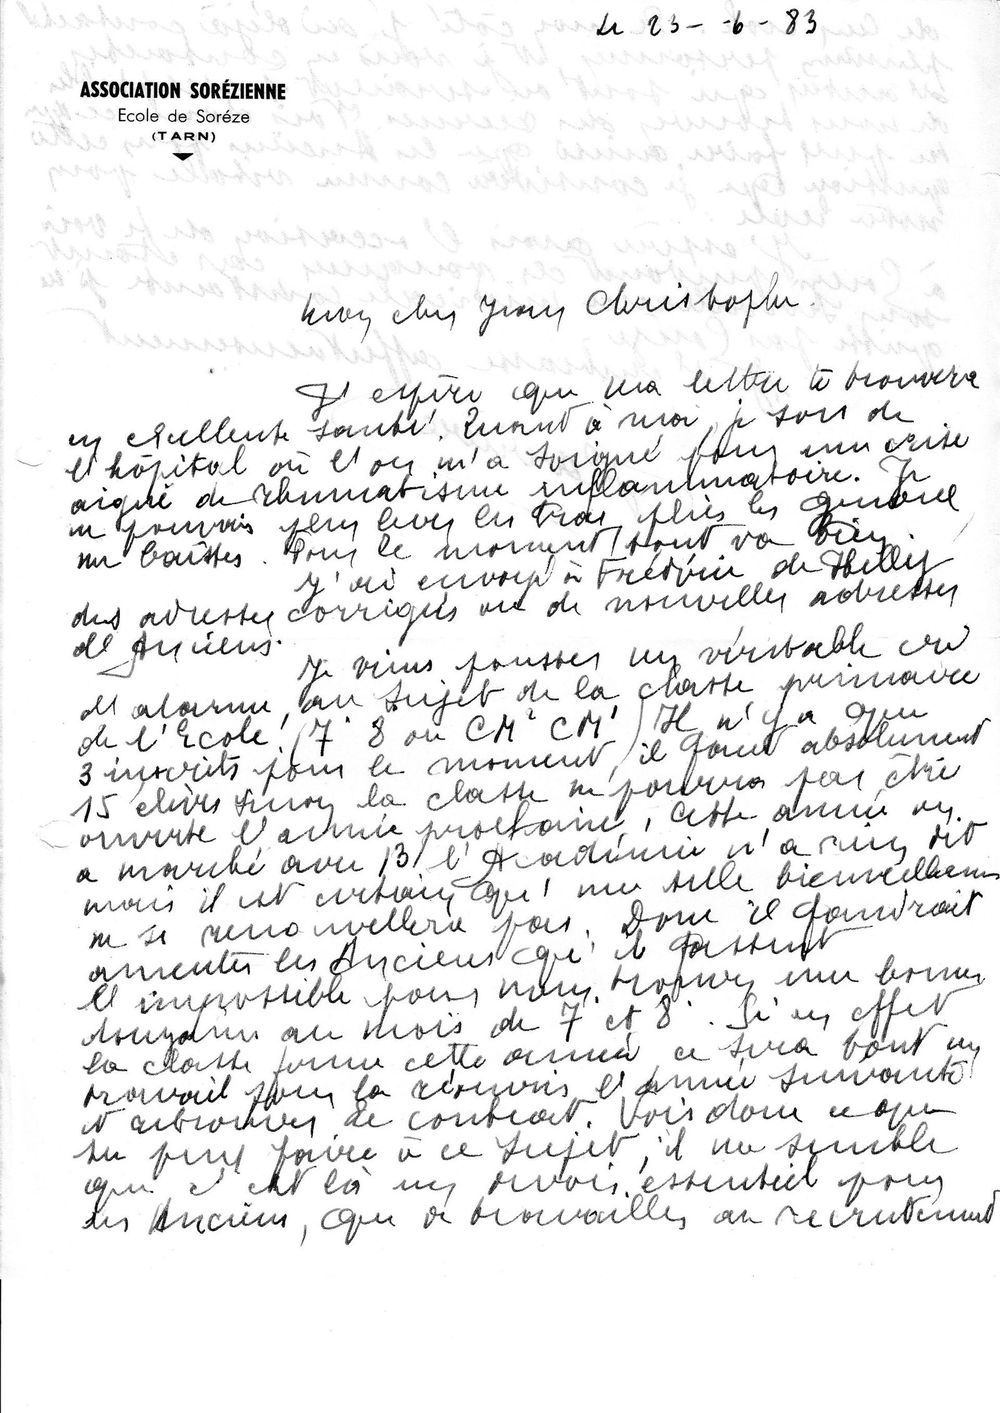 Le 23-6-83
ASSOCIATION SORÉZIENNE
Ecole de Sorèze
(TARN)
Mon cher Jean Christophe.
J'espère que ma lettre te trouvera
en excellente santé. Quant à moi, je sors de
l'hôpital où l'on m'a soigné pour une crise
aiguë de rhumatisme inflammatoire. Je
ne pouvais plus lever les bras, plier les genoux
me baisser. Pour le moment, tout va bien.
J'ai envoyé à Frédéric de
des adresses corrigées ou de nouvelles adresses
d'Anciens.
Je viens pousser un véritable cri
d'alarme, au sujet de la classe primaire
de l'Ecole. (7e 8e ou CM2 CM1) Il n'y a que
3 inscrits pour le moment, il faut absolument
15 élèves sinon la classe ne pourra pas être
ouverte l'année prochaine. Cette année on
a marché avec 13 l'Académie n'a rien dit
mais il est certain qu'une telle bienveillance
ne se renouvellera pas. Donc il faudrait
ameuter les Anciens qu'ils fassent
l'impossible pour nous trouver une bonne
douzaine au mois de 7e et 8e. Si en effet
la classe ferme cette année ce sera tout un
travail pour la réouvrir l'année suivante
et retrouver le contrat. Vois donc ce que
tu peux faire à ce sujet, il me semble
que c'est là un devoir essentiel pour
les Anciens, que de travailler au recrutement